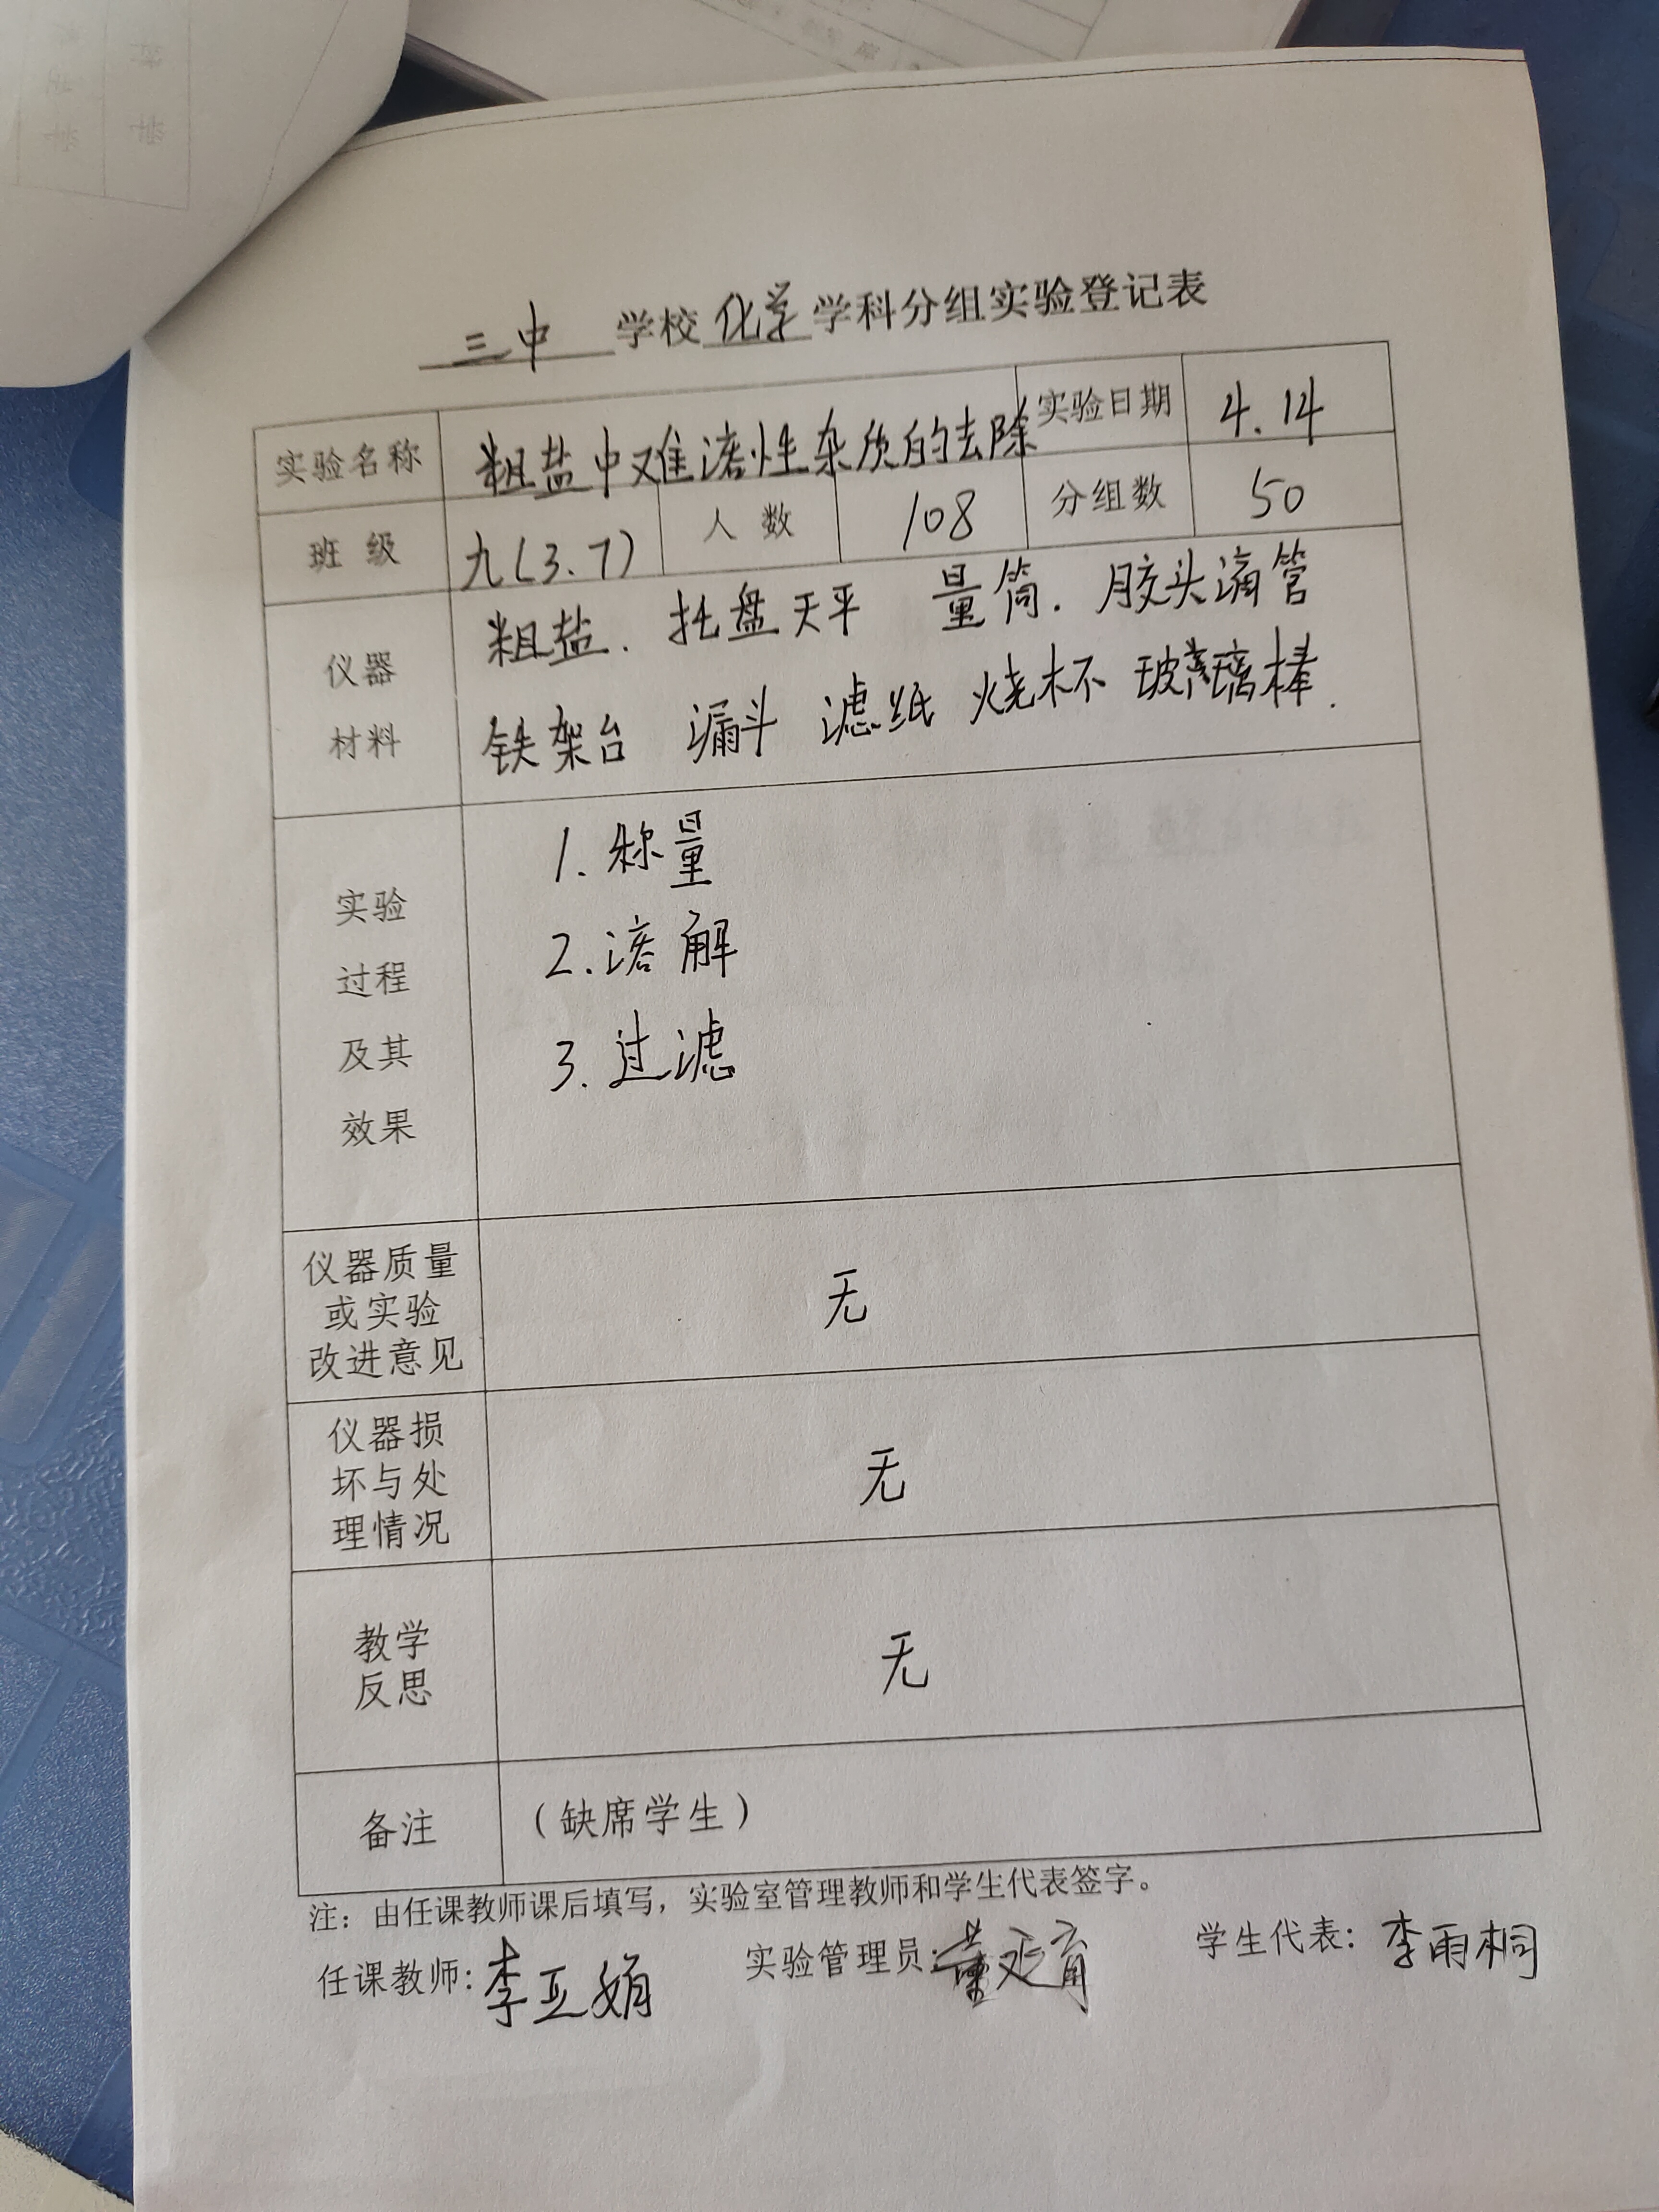 三中 学校 化学 学科分组实验登记表
实验名称 粗盐中难溶性杂质的去除 实验日期 4.14
班 级 九(3.7) 人 数 108 分组数 50
仪器
材料
粗盐. 托盘天平 量筒. 胶头滴管
铁架台 漏斗 滤纸 烧杯 玻璃棒.
实验
过程
及其
效果
1.称量
2.溶解
3.过滤
仪器质量
或实验
改进意见
无
仪器损
坏与处
理情况
无
教学
反思
无
备注 (缺席学生)
注：由任课教师课后填写，实验室管理教师和学生代表签字。
任课教师:李亚娟 实验管理员: 学生代表: 李雨桐